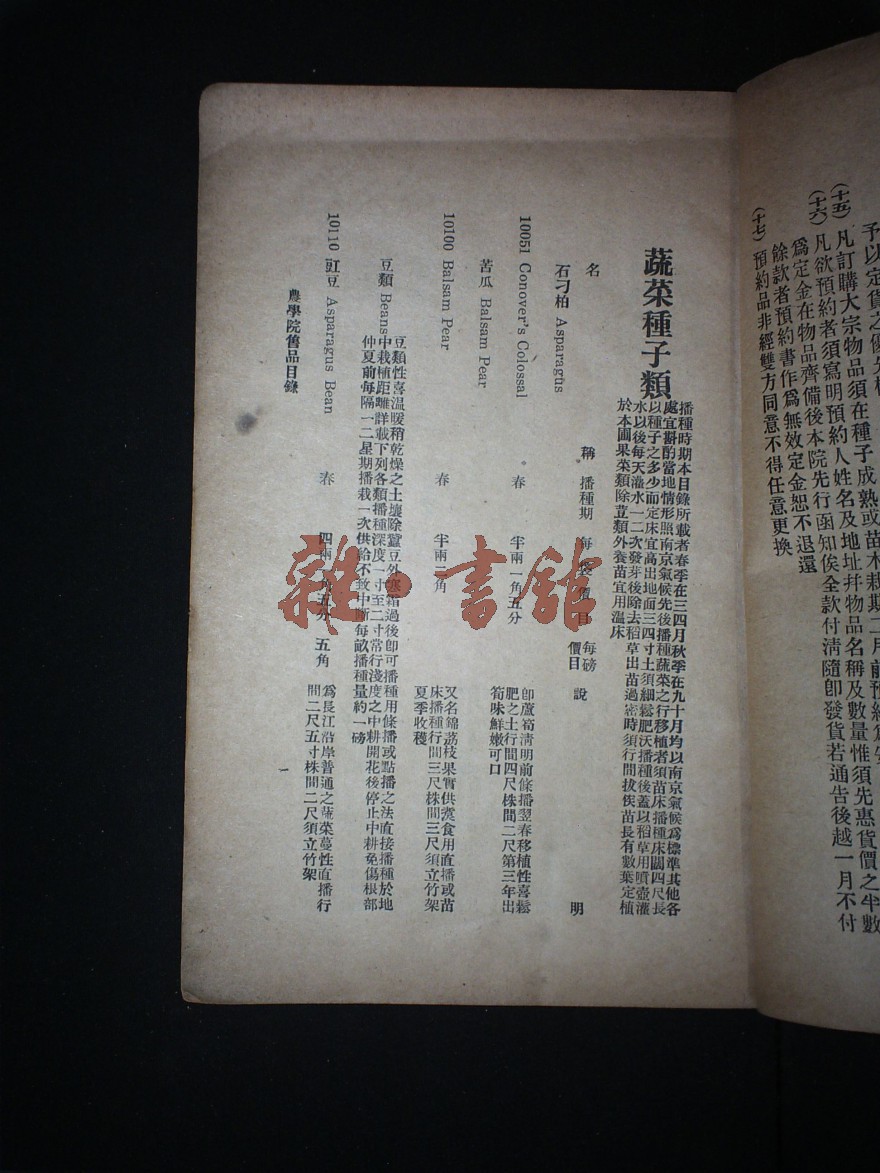 予以定貨之優先權
(十五) 凡訂購大宗物品須在種子成熟或苗木栽期二月前預約爲妥
(十六) 凡欲預約者須寫明預約人姓名及地址幷物品名稱及數量惟須先惠貨價之半數
爲定金在物品齊備後本院先行函知俟全款付淸隨卽發貨若通告後越一月不付
餘款者預約書作爲無效定金恕不退還
(十七) 預約品非經雙方同意不得任意更換
蔬菜種子類
播種時期本目錄所載者春季在三四月秋季在九十月均以南京氣候爲標準其他各
處宜斟酌當地情形照南京氣候先後播種蔬菜之行移植者須苗床播種床闊四尺長
以種子之多少而定床宜高出地面三四寸土須細鬆肥沃播種後蓋以稻草用噴壺灌
水以後每天灌水一二次發芽後除去稻草出苗過密時須行間拔俟苗長有數葉定植
於本圃果菜類除荳類外養苗宜用溫床
名 稱 播種期 每袋價目 每磅價目 說 明
石刁柏 Asparagus
10051 Conover's Colossal 春 半兩一角五分
卽蘆筍淸明前條播翌春移植性喜鬆
肥之土行間四尺株間二尺第三年出
筍味鮮嫩可口
苦瓜 Balsam Pear
10100 Balsam Pear 春 半兩二角
又名錦荔枝果實供煑食用直播或苗
床播種行間三尺株間三尺須立竹架
夏季收穫
豆類 Beans
豆類性喜溫暖稍乾燥之土壤除蠶豆外寒霜過後卽可播種用條播或點播之法直接播種於地
中栽植距離詳載下列各類播種深度一寸至二寸常行淺度之中耕開花後停止中耕免傷根部
仲夏前每隔一二星期播栽一次供給不致中斷每畝播種量約一磅
10110 豇豆 Asparagus Bean 春 四兩一角五分 五角
爲長江沿岸普通之蔬菜蔓性直播行
間二尺五寸株間二尺須立竹架
農學院舊品目錄
一
雜·書館